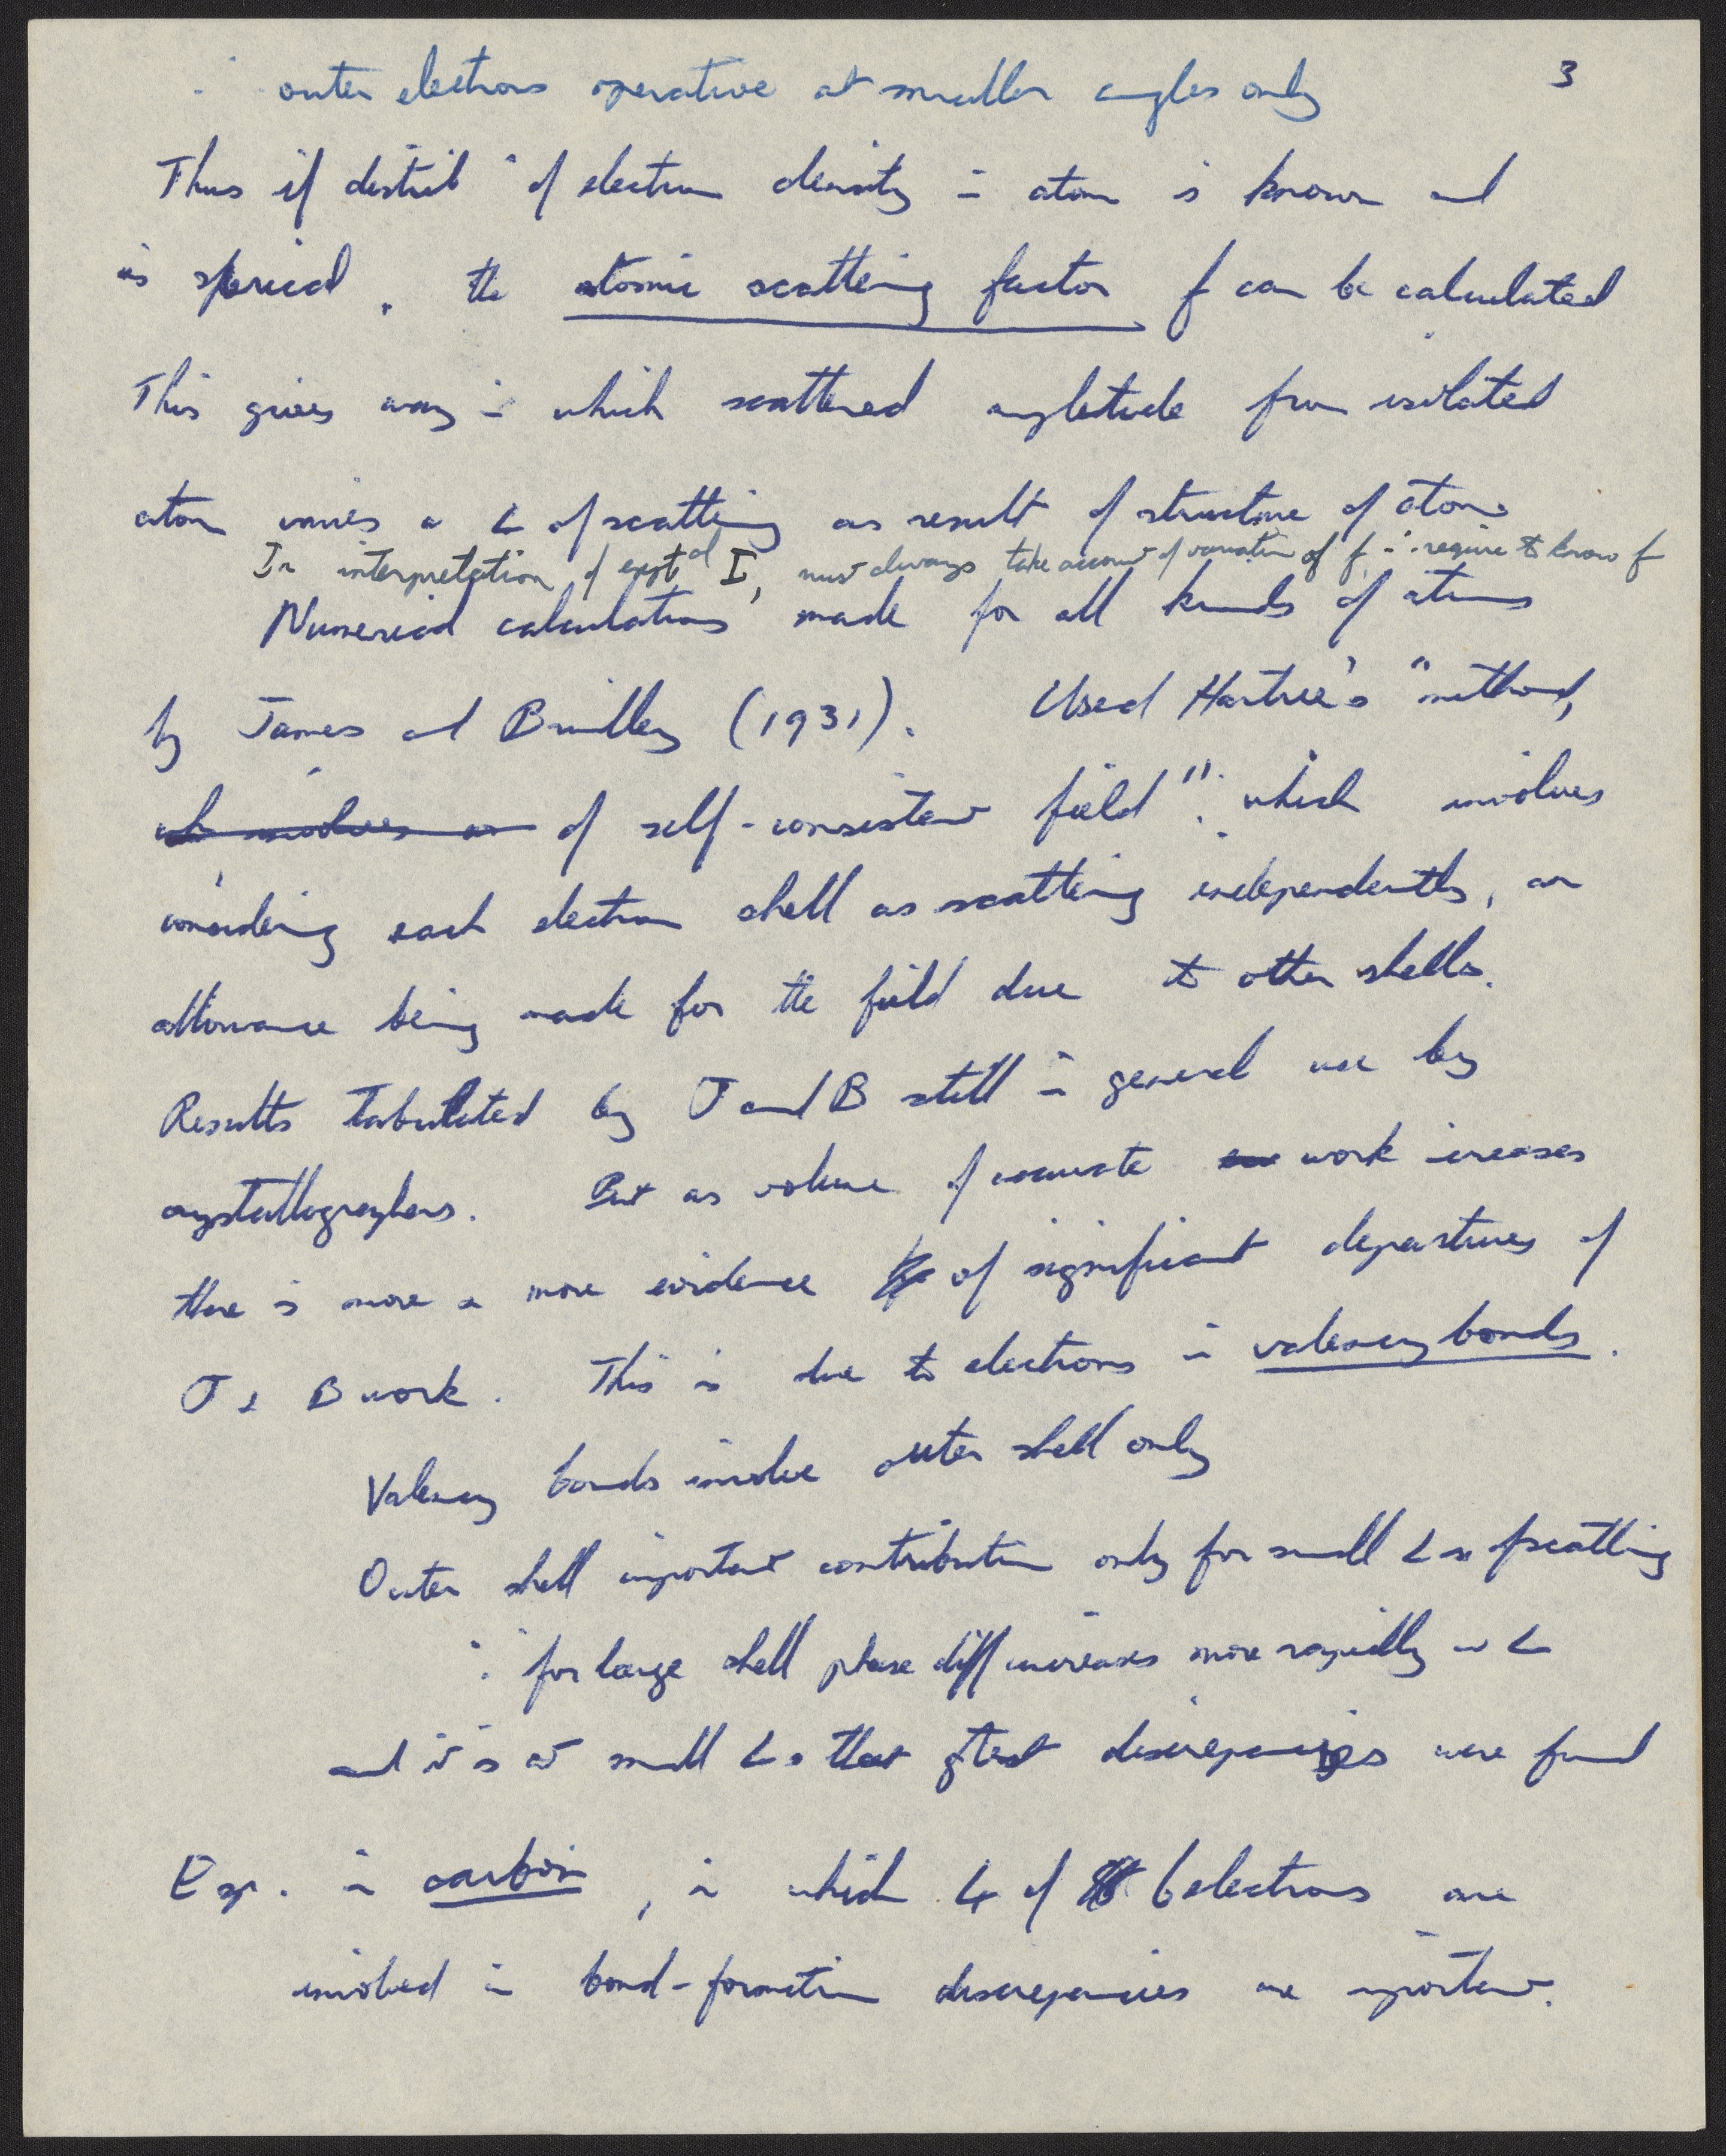 ∴ outer electrons operative at smaller angles only 3
Thus if distribn of electron density in atom is known and
is sperical, the atomic scattering factor f can be calculated
This gives way in which scattered amplitude from isolated
atom varies w ∠ of scattering as result of structure of atom
In interpretation of exptal I, must always take account of variation of f ∴ require to know f
Numerical calculations made for all kinds of atoms
by James and Brindley (1931). Used Hartree's "method,
wh involves an of self-consistent field", which involves
considering each electron shell as scattering independently, an
allowance being made for the field due to other shells.
Results tabulated by J and B still in general use by
crystallographers. But as volume of accurate work increases
there is more & more evidence of significant departures of
J & B work. This is due to electrons in valency bonds.
Valency bonds involve outer shell only
Outer shell important contribution only for small ∠s of scattering
∵ for large shell phase diff increases more rapidly w ∠
and it is at small ∠s that gtest discrepancies were found
Esp. in carbon, in which 4 of 6 electrons are
involved in bond-formation discrepancies are important.